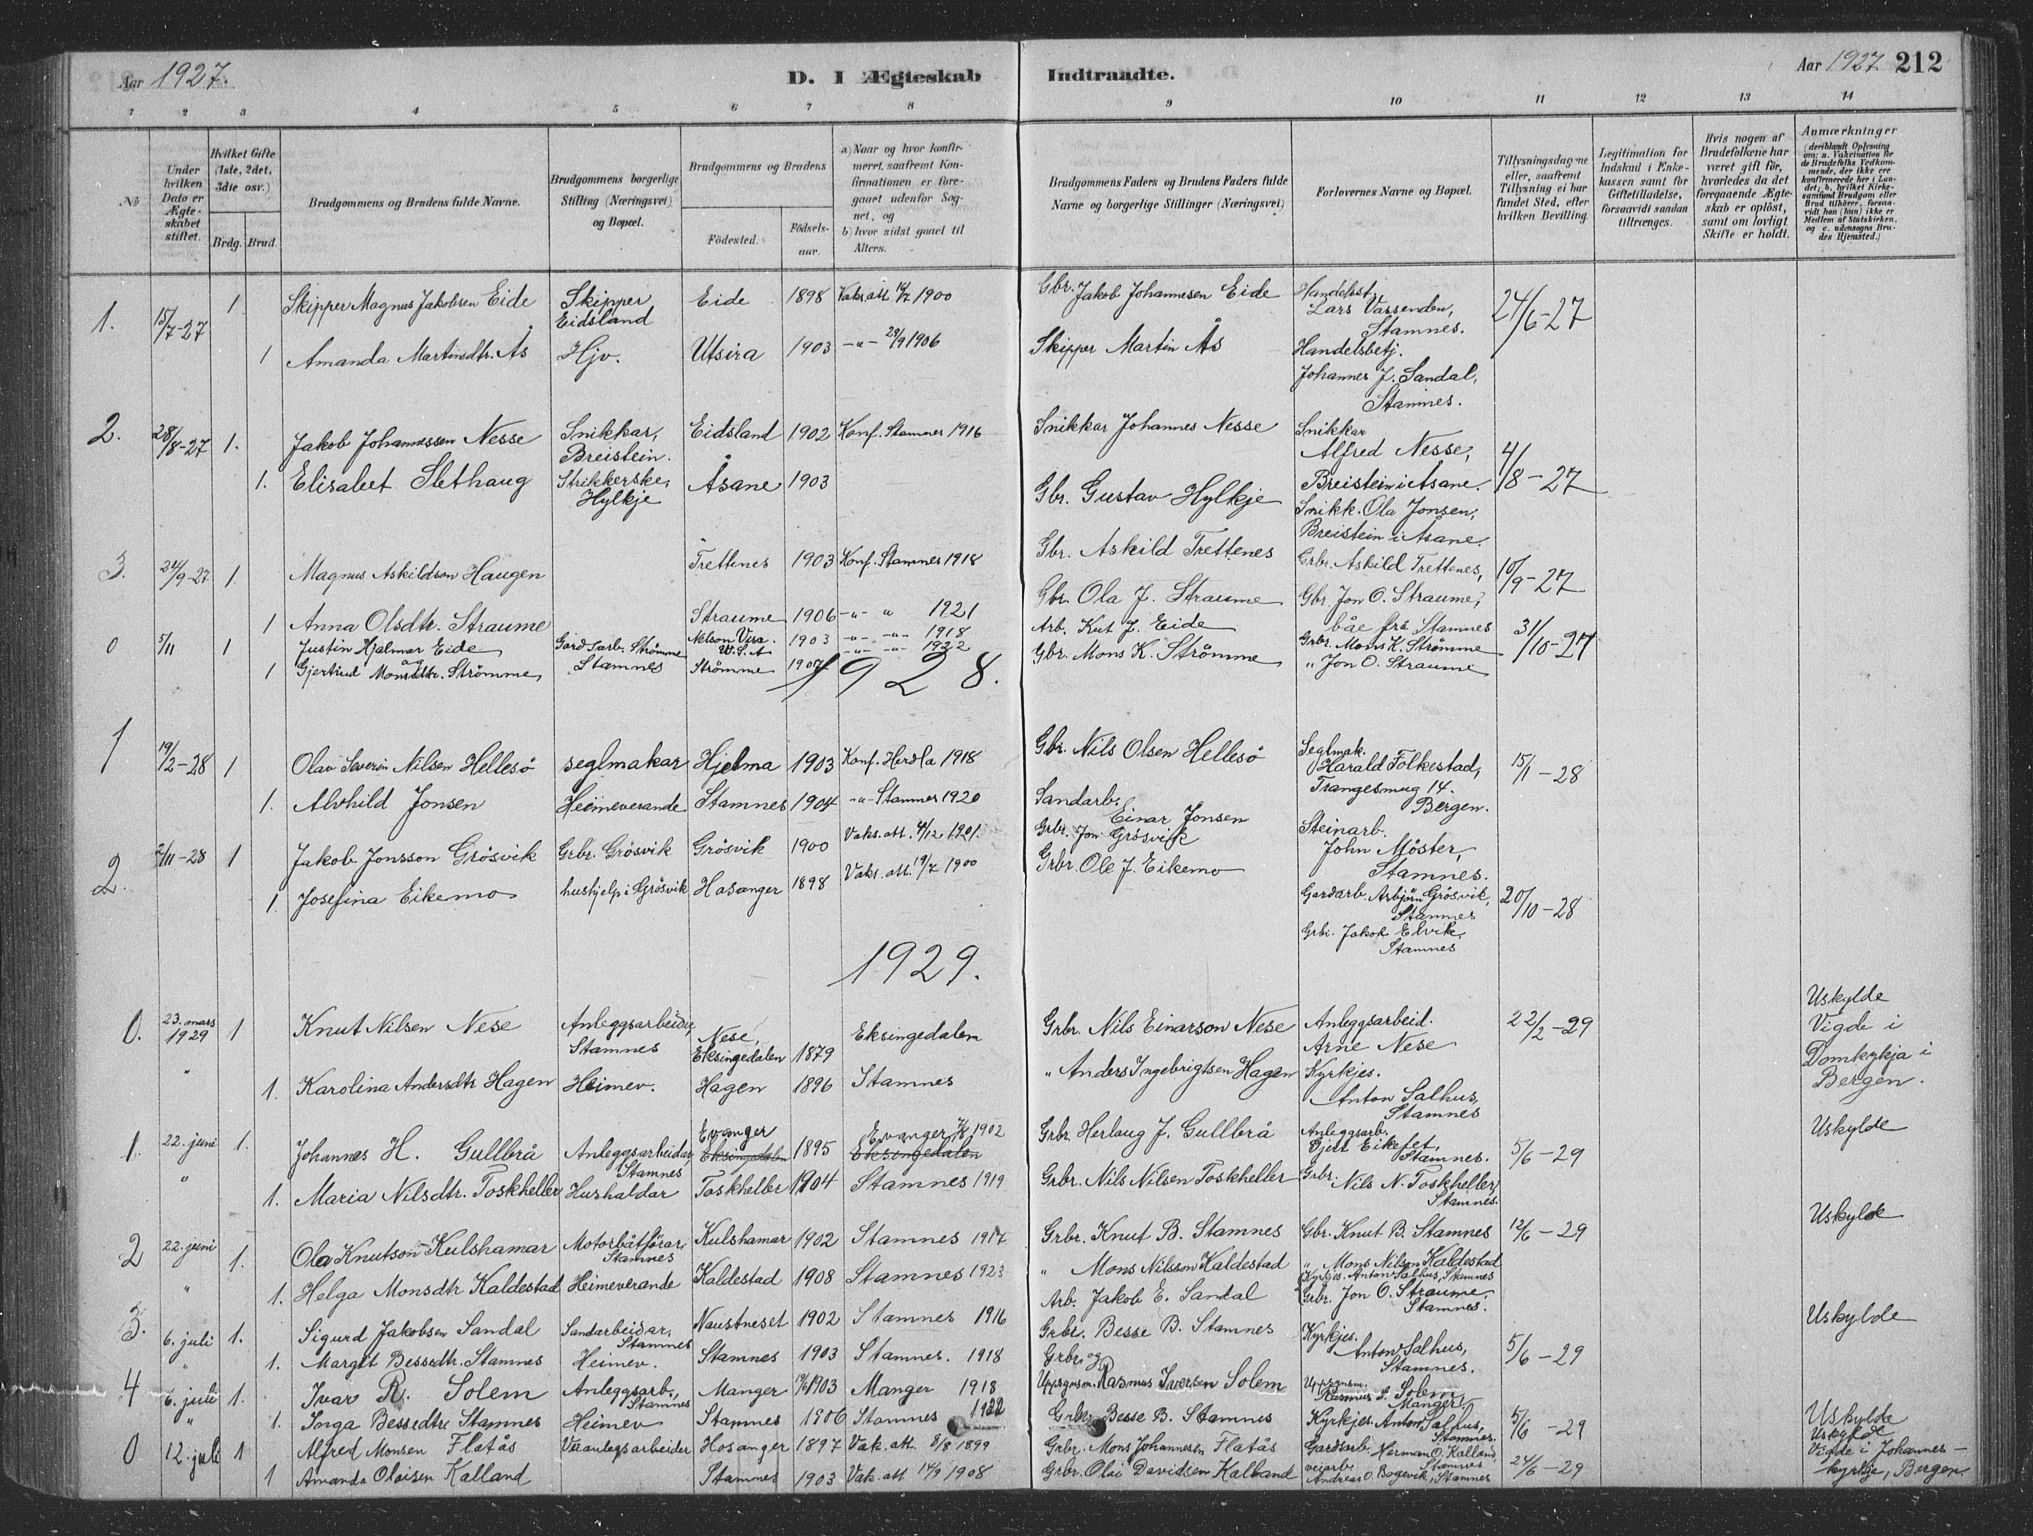 Aar 1927.
D. I Ægteskab Indtraadte.
Aar 1927. 212
1 2 3 4 5 6 7 8 9 10 11 12 13 14
No
Under hvilken Dato er Ægteskabet stiftet.
Hvilket Gifte (1ste, 2det, 3die osv.)
Brdg. Brud.
Brudgommens og Brudens fulde Navne.
Brudgommens borgerlige Stilling (Næringsvei) og Bopæl.
Brudgommens og Brudens
Fødested. Fødselsaar.
a) Naar og hvor konfirmeret, saafremt Konfirmationen er foregaaet udenfor Sognet, og
b) hvor sidst gaael til Alters.
Brudgommens Faders og Brudens Faders fulde Navne og borgerlige Stillinger (Næringsvei)
Forlovernes Navne og Bopæl.
Tillysningsdagene eller, saafremt Tillysning ei har fundet Sted, efter hvilken Bevilling.
Legitimation for Indskud i Enkekassen samt for Giftetilladelse, forsaavidt saadan tiltrænges.
Hvis nogen af Brudefolkene har været gift før, hvorledes da det foregaaende Ægteskab er opløst, samt om lovligt Skifte er holdt.
Anmærkninger
(deriblandt Oplysning om: a. Vakcination for de Brudefolks Vedkommende, der ikke ere konfirmerede her i Landet; b. hvilket Kirkesamfund Brudgom eller Brud tilhører, forsaavidt han (hun) ikke er Medlem af Statskirken, og c. udensogns Brudes Hjemsted.)
1. 15/7-27 1 Skipper Magnus Jakobsen Eide Skipper Eidsland Eide 1898 Vaks.att 1900 Gbr. Jakob Johannesen Eide Handelsst. Lars Vassenden, Stamnes. 24/6-27
1 Amanda Martinsdtr. Ås Hjv. Utsira 1903 -"- 29/9 1906 Skipper Martin Ås Handelsbetj. Johannes J. Sandal, Stamnes.
2. 28/8-27 1. Jakob Johannessen Nesse Snikkar, Breistein. Eidsland 1902 Konf. Stamnes 1916 Snikkar Johannes Nesse Snikkar Alfred Nesse, Breistein i Åsane. 4/8-27
1. Elisabet Slethaug Strikkerske, Hylkje Åsane 1903 Gbr. Gustav Hylkje Snikk. Ola Jonsen, Breistein i Åsane.
3. 24/9-27 1. Magnus Askildson Haugen Trettenes 1903 Konf. Stamnes 1918 Gbr. Askild Trettenes Grbr. Askild Trettenes, 10/9-27
1 Anna Olsdtr. Straume Straume 1906 -"- " 1921 Gbr. Ola J. Straume Gbr. Jon O. Straume, båe frå Stamnes
0 5/11 1 Justin Hjalmar Eide Gardsarb. Strømme Stamnes Nelson Vira. U.S.A 1903 -"- -"- 1918 Arb. Knt J. Eide Grbr. Mons K. Strømme 31/10-27
1 Gjertrud Monsdtr. Strømme, Strømme 1907 -"- -"- 1922 Gbr. Mons K. Strømme " Jon O. Straume
1928.
1 19/2-28 1 Olav Severin Nilsen Hellesö seglmakar Hjelma 1903 Konf. Herdla 1918 Gbr. Nils Olsen Hellesö Seglmak. Harald Folkestad, Trangesmug 14. Bergen. 15/1-28
1. Alvhild Jonsen Heimeverande Stamnes 1904 -"- Stamnes 1920 Sandarb. Einar Jonsen Steinarb. John Møster, Stamnes.
2. 2/11-28 1 Jakob Jonsson Grösvik Grbr. Grösvik Grösvik 1900 Vaks. att. 4/12 1901. Grbr. Jon Grösvik Gardarb. Arbjörn Grösvik, Stamnes 20/10-28
1. Josefina Eikemo hushjelp i Grösvik Hosanger 1898 Vaks. att. 19/7 1900 Grbr Ole J. Eikemo Grbr. Jakob Elvik, Stamnes
1929.
0. 23. mars 1929 1 Knut Nilsen Nese Anleggsarbeidar, Stamnes Nese, Eksingedalen 1879 Eksingedalen Grbr. Nils Einarson Nese Anleggsarbeid. Arne Nese 22/2-29 Uskylde Vigde i Domkykja i Bergen.
" 1. Karolina Andersdtr Hagen Heimev. Hagen 1896 Stamnes " Anders Ingebrigtsen Hagen Kyrkjes. Anton Salhus, Stamnes
1. 22. juni 1. Johannes H. Gullbrå Anleggsarbeidar, Stamnes Evanger Eksingedalen 1895 Evanger 1902 Eksingedalen Grbr. Herlaug J. Gullbrå Anleggsarb. Gjert Eikefet, Stamnes. 5/6-29 Uskylde
" 1. Maria Nilsdtr. Toskheller Hushaldar Toskheller 1904 Stamnes 1919 Grbr. Nils Nilsen Toskheller Grbr. Nils N. Toskheller, Stamnes.
2 22. juni 1. Ola Knutson Kulshamar Motorbåtförar, Stamnes Kulshamar 1902 Stamnes 1917 Grbr. Knut B. Stamnes Gbr. Knut B. Stamnes 12/6-29 Uskylde
" 1. Helga Monsdtr Kaldestad Heimeverande Kaldestad 1908 Stamnes 1923 " Mons Nilsson Kaldestad " Mons Nilsen Kaldestad
Kyrkjes. Anton Salhus, Stamnes
3. 6. juli 1. Sigurd Jakobsen Sandal Sandarbeidar, Stamnes Naustneset 1902 Stamnes 1916 Arb. Jakob E. Sandal Grbr. Jon O. Straume, Stamnes. Uskylde
" 1. Margit Bessedtr. Stamnes Heimev. Stamnes 1903 Stamnes. 1918 Grbr. Besse B. Stamnes Kyrkjes. Anton Salhus, Stamnes. 5/6-29
4 6. juli 1. Ivar R. Solem Anleggsarb., Stamnes Manger 1903 Manger 1918 Grbr og Uppsynsm. Rasmus Iversen Solem Uppsynsm. Rasmus I. Solem Manger
" 1. Inga Bessedtr Stamnes Heimev Stamnes 1906 Stamnes 1922 Grbr. Besse B. Stamnes Kyrkjes. Anton Salhus, Stamnes. 5/6-29 Uskylde
0 12. juli 1 Alfred Monsen Flatås Veianlegsarbeider Hosanger 1897 Vak. att. 8/8 1899 Grbr. Mons Johannesen Flatås Gardsarb. Herman O. Kalland, Stamnes Uskylde Vigde i Johanneskyrkje, Bergen.
1 Amanda Olaisen Kalland Stamnes 1903 Vak. att 14/9 1908 Grbr. Olai Davidsen Kalland veiarb. Andreas O. Bogevik, Stamnes 24/6-29